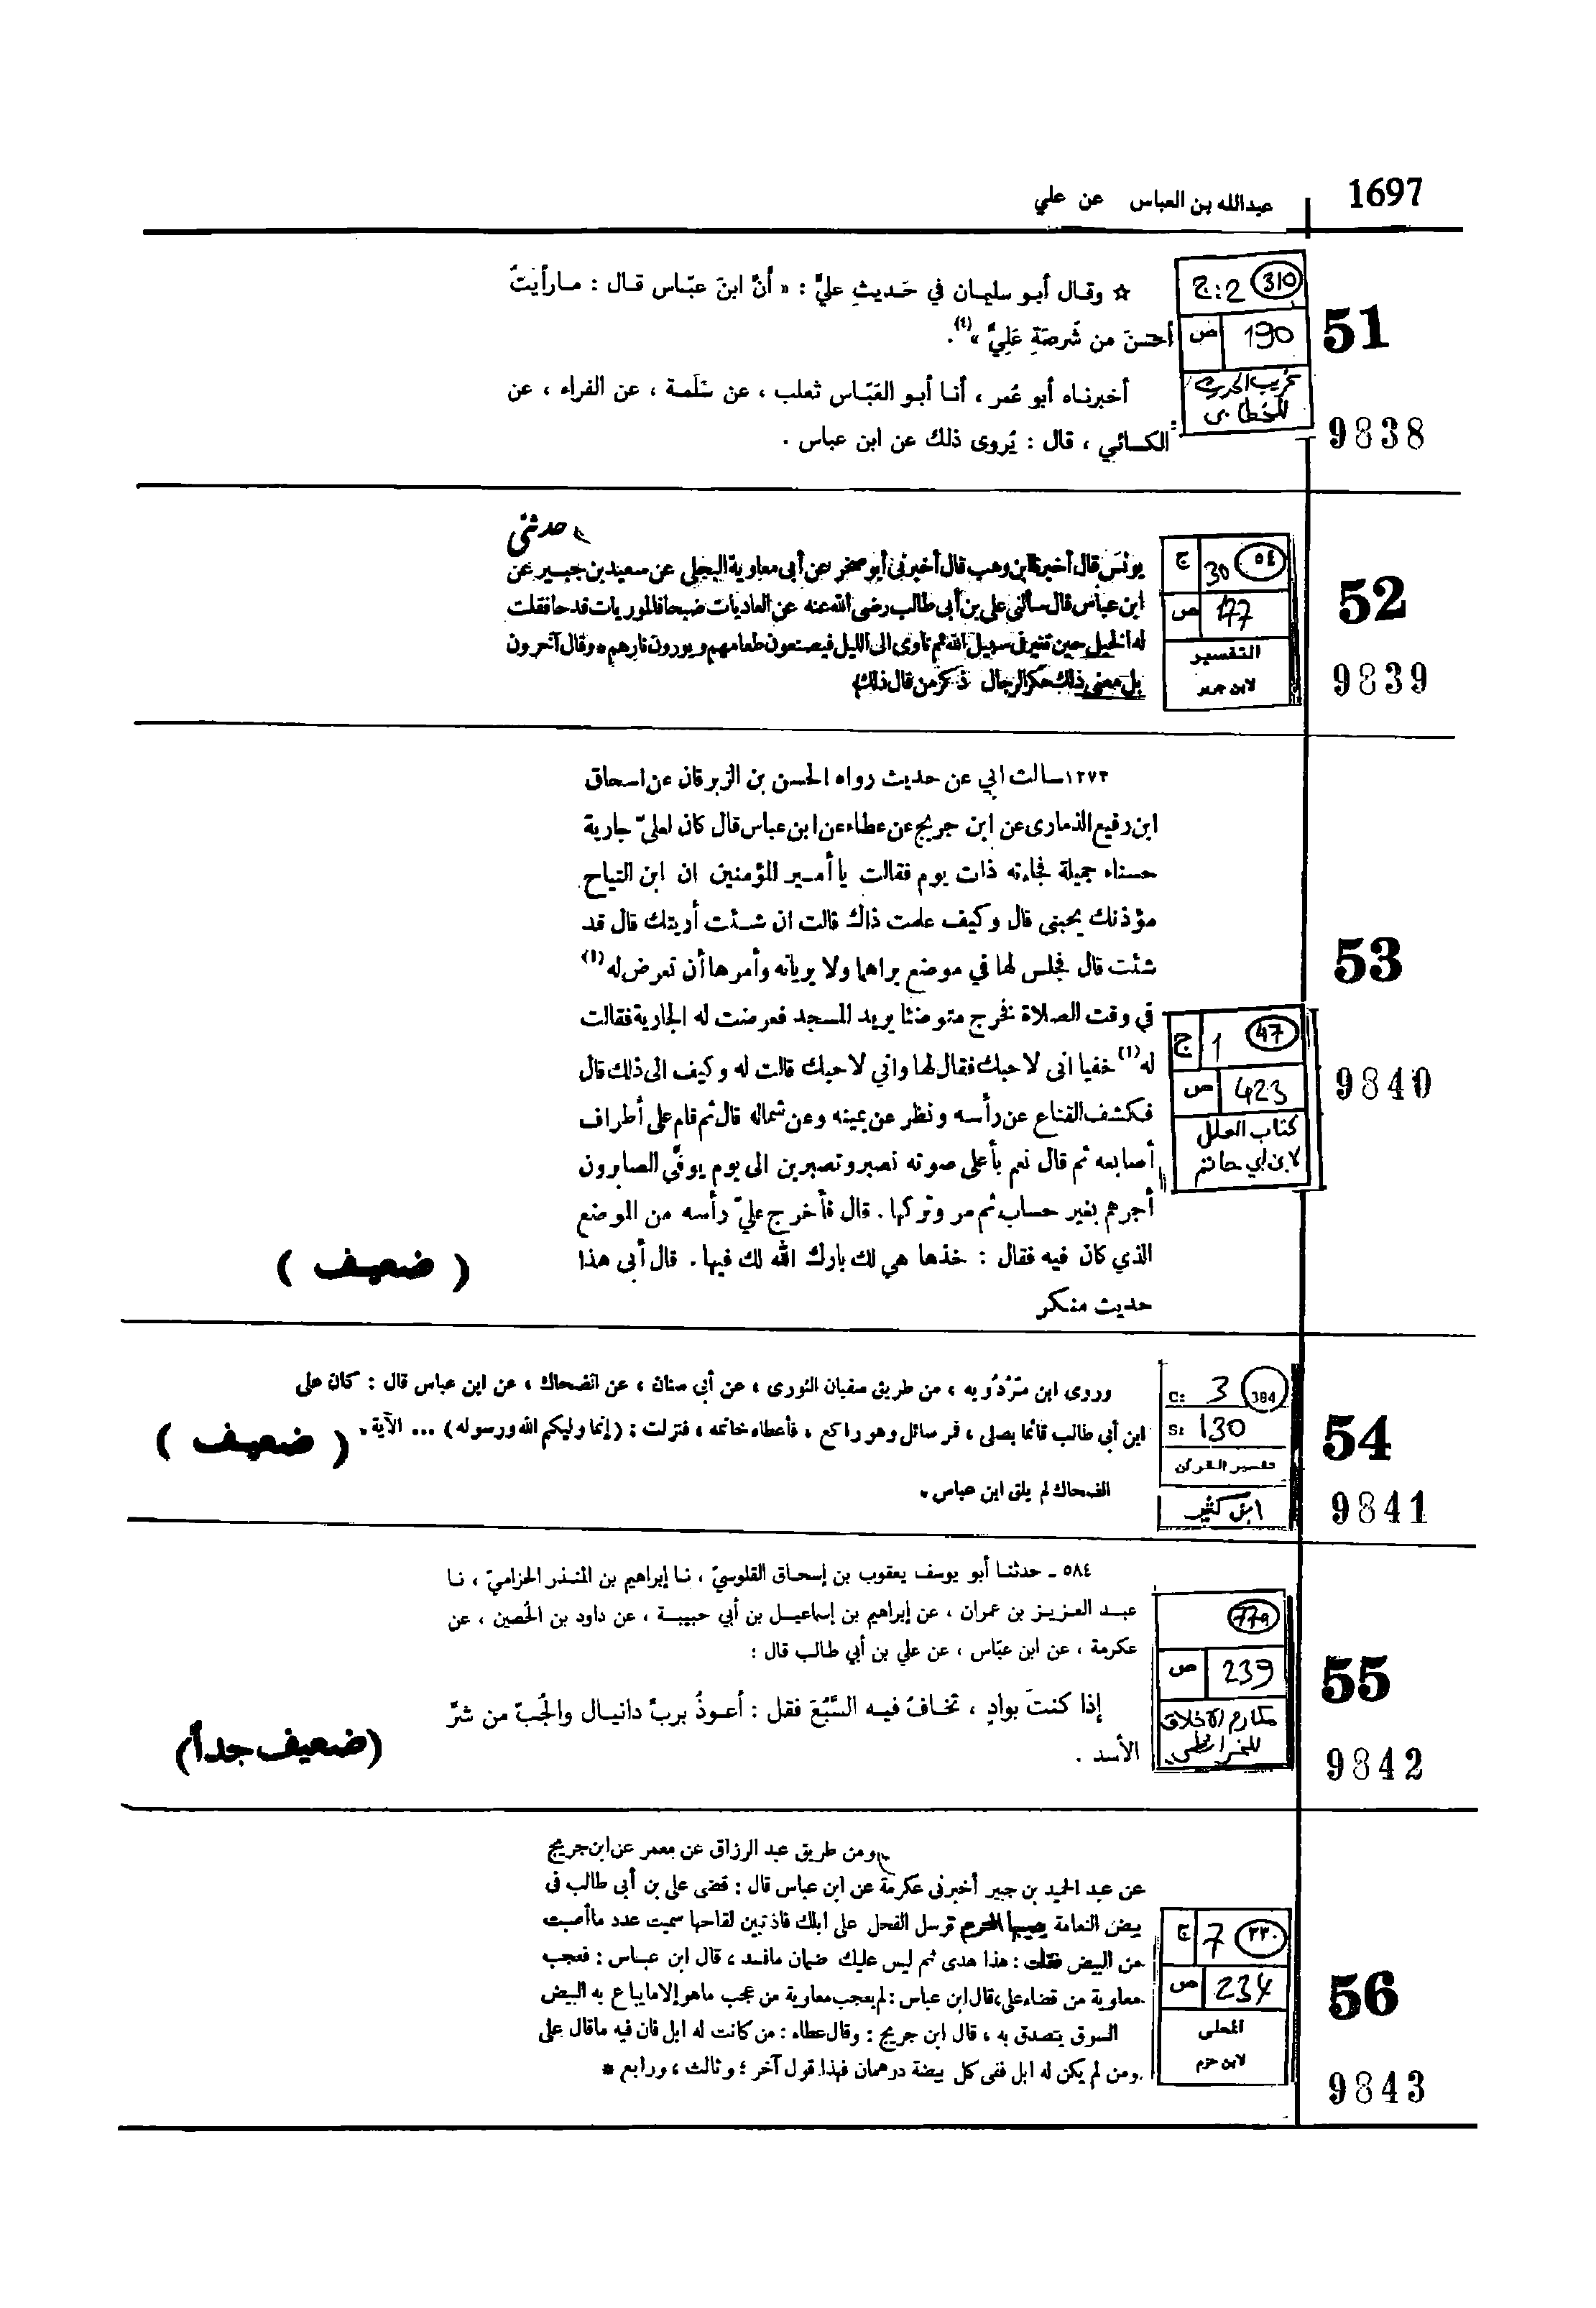 1697
عبدالله بن العباس عن علي
310
ج: 2
190 ص
غريب الحديث
للخطابي
51
9838
☆ وقال أبو سليمان في حَديثِ عليٍّ : « أنّ ابنَ عبّاس قال : مارأيتُ
أحسنَ من شَرصَةِ عَلِيٍّ »(٤).
أخبرناه أبو عُمر ، أنا أبو العَبّاس ثعلب ، عن سَلَمة ، عن الفراء ، عن
الكسائي ، قال : يُروى ذلك عن ابن عباس .
٥٤
30 ج
177 ص
التفسير
لابن جرير
52
9839
حدثني
يونس قال أخبرنا ابن وهب قال أخبرني أبو صخر عن أبي معاوية البجلي عن سعيد بن جبير عن
ابن عباس قال سألني علي بن أبي طالب رضى الله عنه عن العاديات ضبحا فالموريات قدحا فقلت
له الخيل حين تغير فى سبيل الله ثم تأوى الى الليل فيصنعون طعامهم ويورون نارهم * وقال آخرون
بل معنى ذلك مكر الرجال ذكر من قال ذلك
47
1 ج
423 ص
كتاب العلل
لابن ابي حاتم
53
9840
١٢٧٣ــ سالت ابي عن حديث رواه الحسن بن الزبرقان عن اسحاق
ابن رفيع الذمارى عن ابن جريج عن عطاء عن ابن عباس قال كان لعليّ جارية
حسناء جميلة فجاءته ذات يوم فقالت يا أمير المؤمنين ان ابن التياح
مؤذنك يحبنى قال وكيف علمت ذاك قالت ان شئت أريتك قال قد
شئت قال فجلس لها في موضع يراهما ولا يريانه وأمرها أن تعرض له(١)
في وقت الصلاة فخرج متوضئا يريد المسجد فعرضت له الجارية فقالت
له(١) خفيا انى لاحبك فقال لها واني لاحبك قالت له وكيف الى ذلك قال
فكشف القناع عن رأسه ونظر عن يمينه وعن شماله قال ثم قام على أطراف
أصابعه ثم قال نعم بأعلى صوته نصبر وتصبرين الى يوم يوفّى الصابرون
أجرهم بغير حساب ثم مر وتركها . قال فأخرج عليّ رأسه من الموضع
الذي كان فيه فقال : خذها هي لك بارك الله لك فيها . قال أبى هذا
حديث منكر
( ضعيف )
384
C: 3
S: 130
تفسير القرآن
ابن كثير
54
9841
وروى ابن مَرْدُويه ، من طريق سفيان الثورى ، عن أبي سنان ، عن الضحاك ، عن ابن عباس قال : كان على
ابن أبي طالب قائما يصلى ، فمر سائل وهو راكع ، فأعطاه خاتمه ، فنزلت : (إنما وليكم الله ورسوله) ... الآية .
الضحاك لم يلق ابن عباس .
( ضعيف )
779
239 ص
مكارم الاخلاق
للخرائطي
55
9842
٥٨٤ ـ حدثنا أبو يوسف يعقوب بن إسحاق القلوسيّ ، نا إبراهيم بن المنذر الحزاميّ ، نا
عبد العزيز بن عمران ، عن إبراهيم بن إسماعيل بن أبي حبيبة ، عن داود بن الحُصين ، عن
عكرمة ، عن ابن عبّاس ، عن علي بن أبي طالب قال :
إذا كنتَ بوادٍ ، تخافُ فيه السَّبُعَ فقل : أعوذُ بربِّ دانيال والجُبّ من شرّ
الأسد .
(ضعيف جداً)
٣٣٠
7 ج
234 ص
المحلى
لابن حزم
56
9843
ومن طريق عبد الرزاق عن معمر عن ابن جريج
عن عبد الحميد بن جبير أخبرنى عكرمة عن ابن عباس قال : قضى على بن أبى طالب فى
بيض النعامة يصيبها المحرم ترسل الفحل على ابلك فاذ تبين لقاحها سميت عدد ماأصبت
من البيض فقلت : هذا هدى ثم ليس عليك ضمان مافسد ، قال ابن عباس : فعجب
معاوية من قضاء على ، قال ابن عباس : لم يعجب معاوية من عجب ماهو إلا مايباع به البيض
السوق يتصدق به ، قال ابن جريج : وقال عطاء : من كانت له ابل فان فيه ماقال على
ومن لم يكن له ابل ففى كل بيضة درهمان فهذا قول آخر ؛ وثالث ، ورابع *